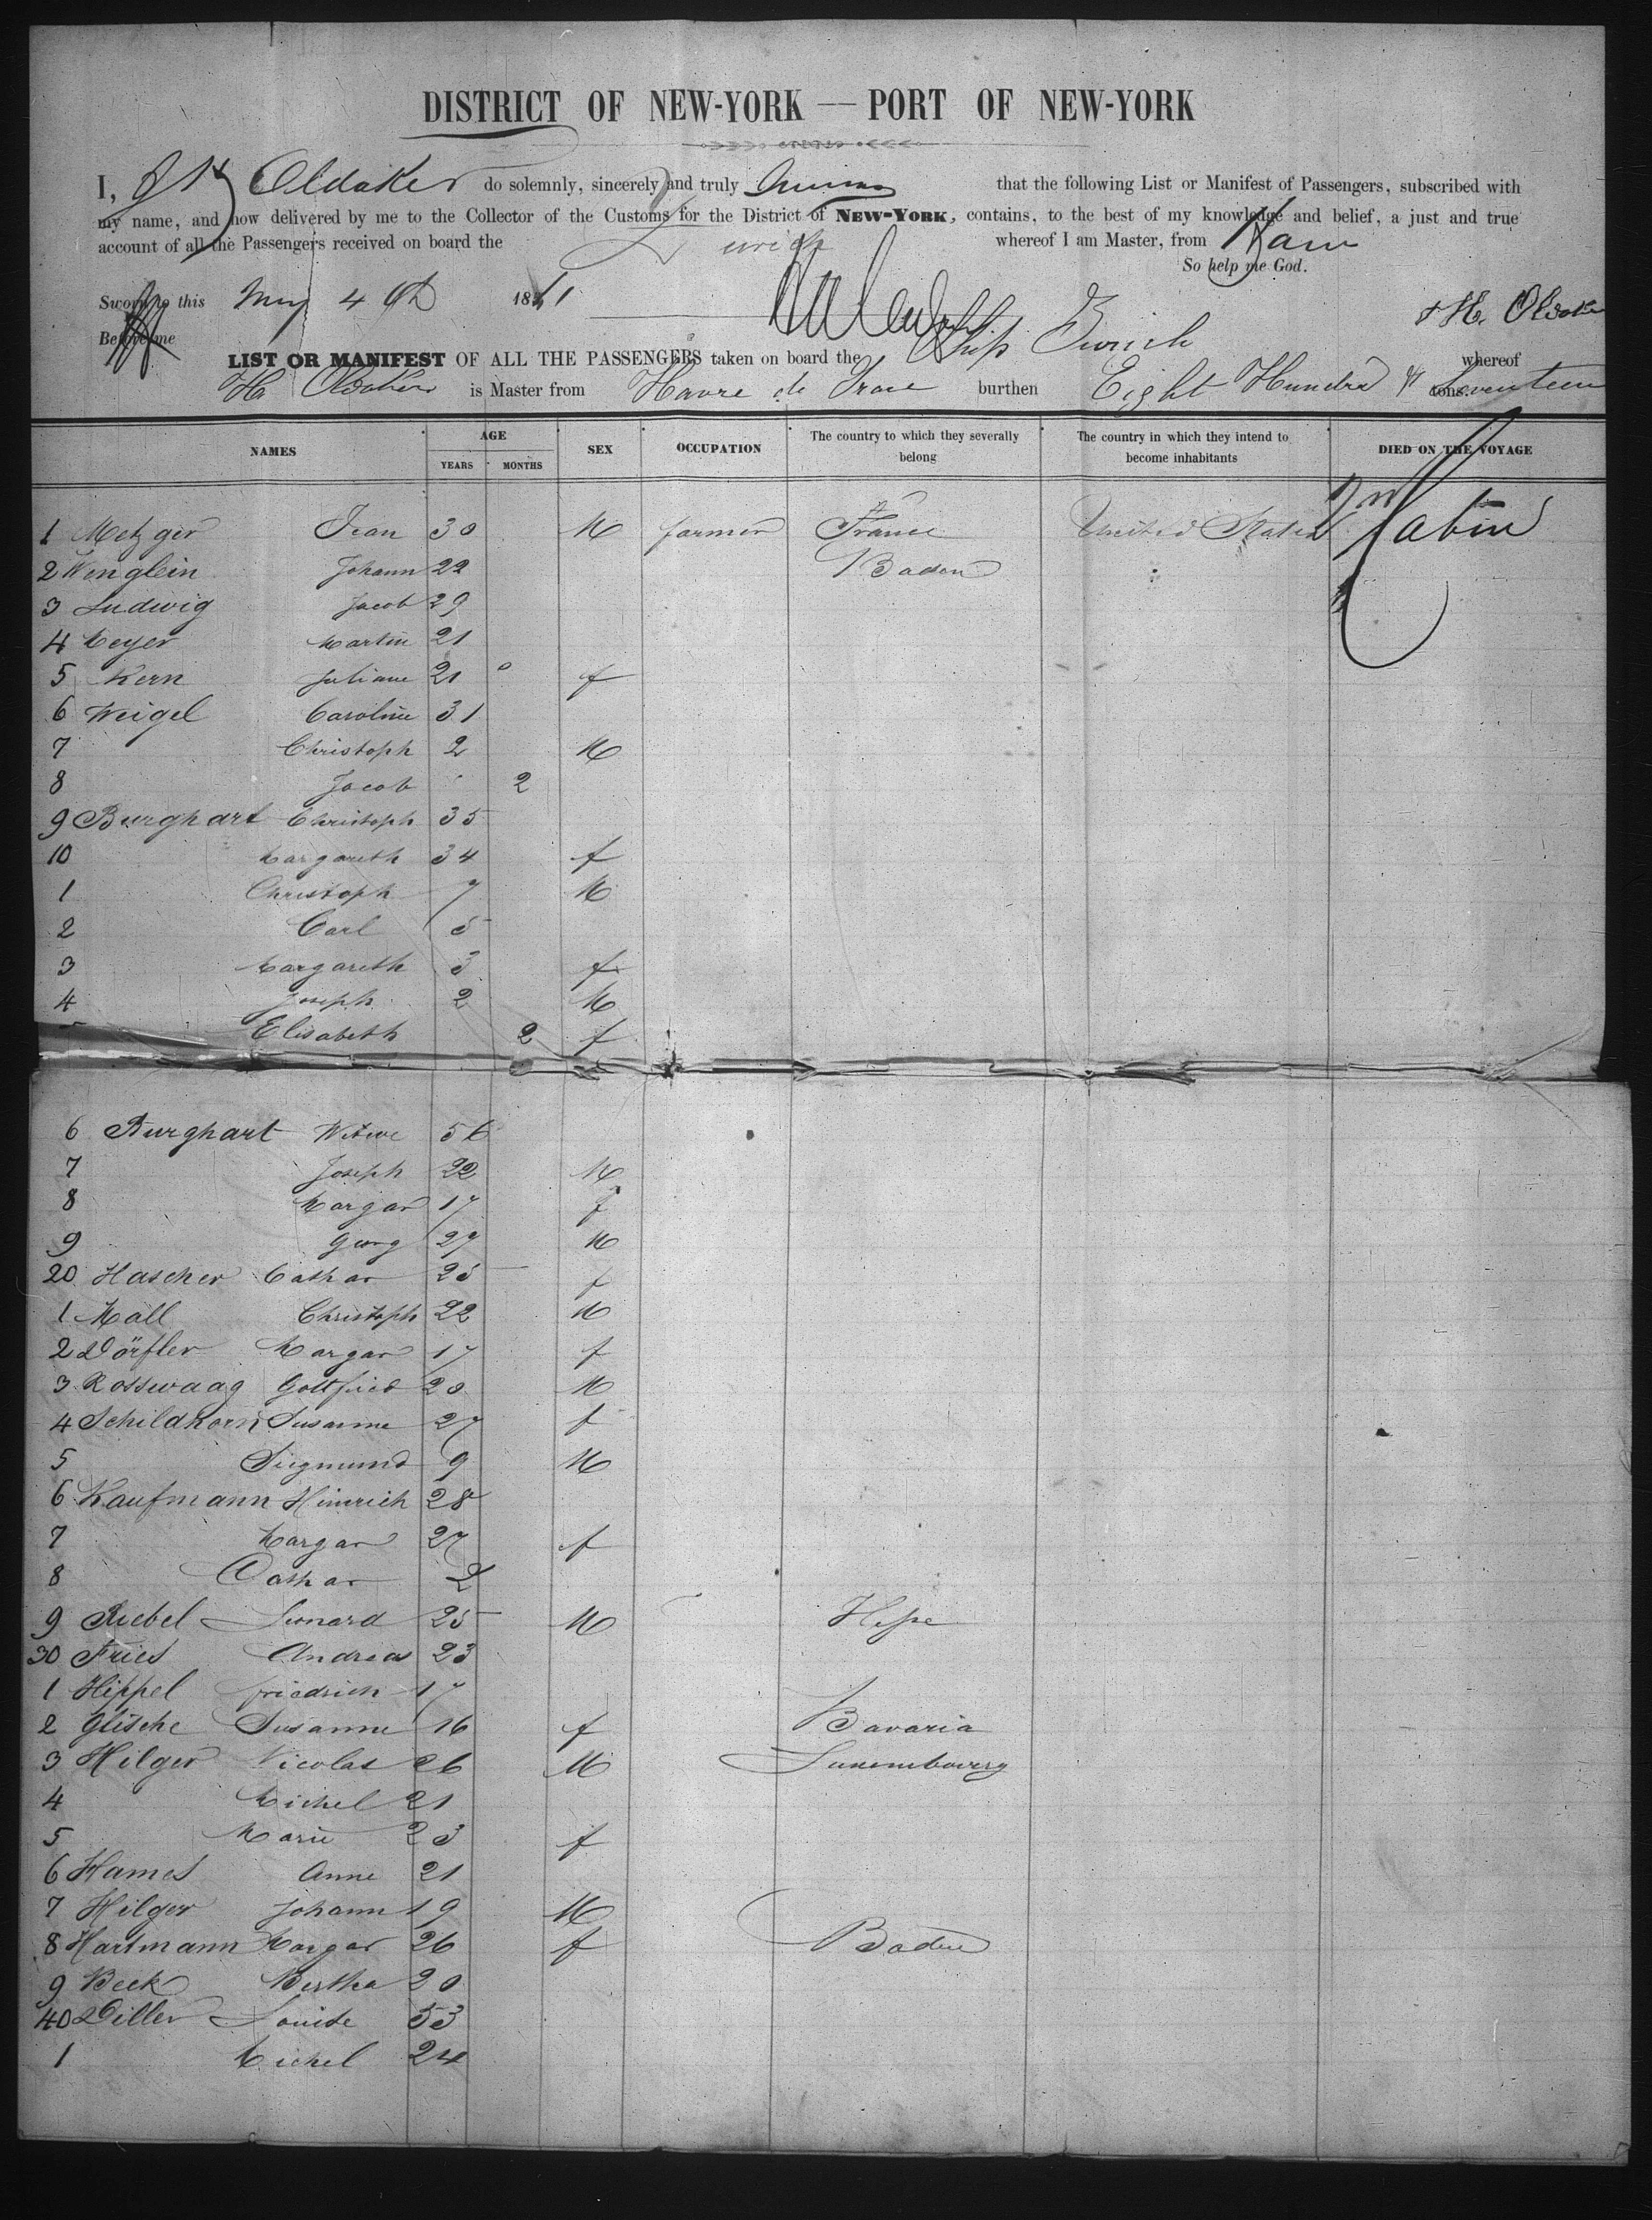 DISTRICT OF NEW-YORK — PORT OF NEW-YORK
I, Oldaker do solemnly, sincerely and truly that the following List or Manifest of Passengers, subscribed with
my name, and now delivered by me to the Collector of the Customs for the District of NEW-YORK, contains, to the best of my knowledge and belief, a just and true
account of all the Passengers received on board the Zurich whereof I am Master, from Havre
So help me God.
Sworn to this May 4th 18
Before me
LIST OR MANIFEST OF ALL THE PASSENGERS taken on board the Ship Zurich whereof
H. Oldaker is Master from Havre de Grace burthen Eight Hundred & Seventeen tons.
NAMES AGE SEX OCCUPATION The country to which they severally belong The country in which they intend to become inhabitants DIED ON THE VOYAGE
YEARS MONTHS
1 Metzger Jean 30 M farmer France United States Cabin
2 Wenglein Johann 22 Baden
3 Ludwig Jacob 29
4 Meyer Martin 21
5 Kern Juliane 21 f
6 Weigel Caroline 31
7 Christoph 2 M
8 Jacob 2
9 Burghart Christoph 35
10 Margareth 34 f
1 Christoph 7 M
2 Carl 5
3 Margareth 3 f
4 Joseph 2 M
Elisabeth 2 f
6 Burghart Witwe 56
7 Joseph 22 M
8 Margar 17 f
9 Georg 29 M
20 Hascher Cathar 25 f
1 Mall Christoph 22 M
2 Dörfler Margar 17 f
3 Rosswaag Gottfried 20 M
4 Schildkorn Susanne 27 f
5 Siegmund 9 M
6 Kaufmann Heinrich 28
7 Margar 27 f
8 Cathar 2
9 Riebel Leonard 25 M Hesse
30 Fries Andreas 23
1 Hippel friedrich 17
2 Glische Susanne 16 f Bavaria
3 Hilger Nicolas 26 M Luxembourg
4 Michel 21
5 Marie 23 f
6 Hames Anne 21
7 Hilger Johann 19 M
8 Hartmann Margar 26 f Baden
9 Beck Bertha 20
40 Diller Louise 53
1 Michel 24